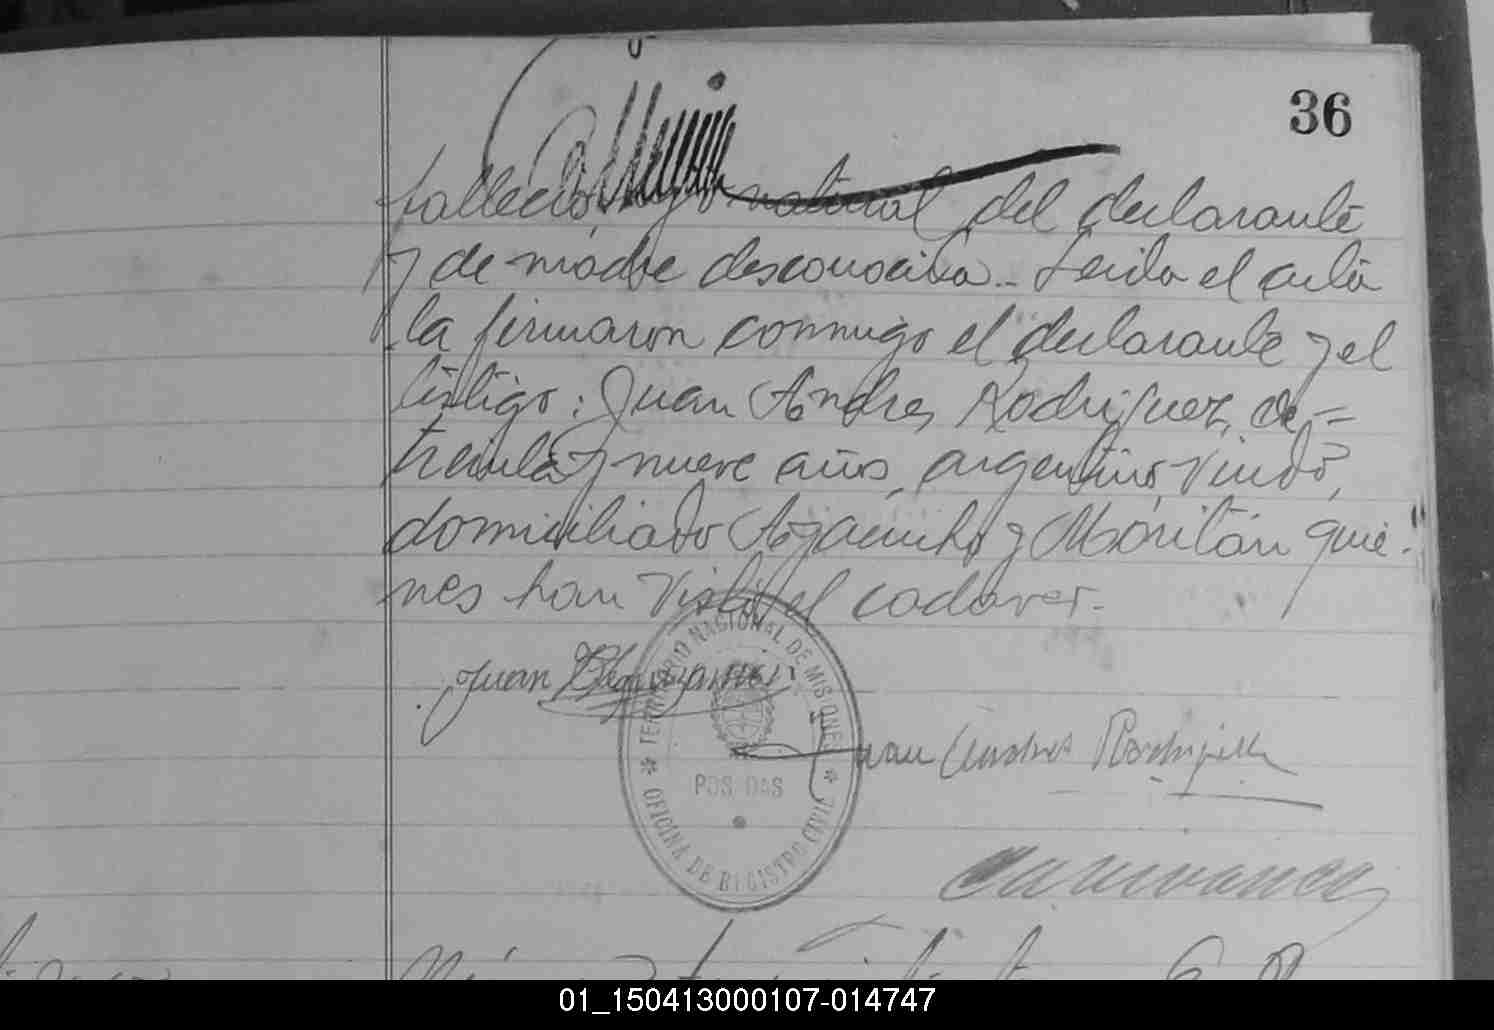 36
falleció, hijo natural del declarante
y de madre desconocida.- Leida el acta
la firmaron conmigo el declarante y el
testigo: Juan Andres Rodriguez, de=
treinta y nueve años, argentino, viudo,
domiciliado Ayacucho y Moritán quie-
nes han visto el cadaver.-
Juan
TERRITORIO NACIONAL DE MISIONES
Juan Andres Rodriguez
POSADAS
OFICINA DE REGISTRO CIVIL
01_150413000107-014747